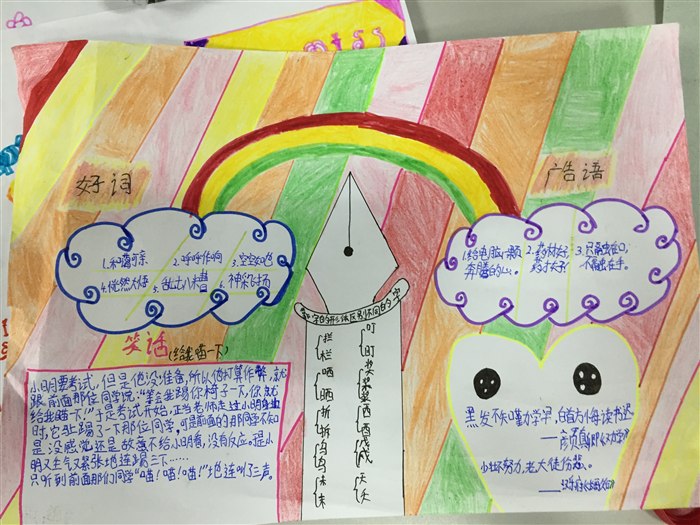 好词
广告语
1.和蔼可亲 2.呼呼作响 3.空空如也
4.恍然大悟 5.乱七八糟 6.神采飞扬
1.给电脑一颗奔腾的心。
2.药材好,药才好
3.只融在口,不融在手。
笑话(给我喵一下)
小明要考试,但是他没准备,所以他打算作弊,就
跟前面那位同学说:“等会我踢你椅子一下,你就
给我瞄一下!”于是考试开始,正当老师走过小明身边
时,它就踢了一下那位同学,可是前面的那同学不知
是没感觉还是故意不给小明看,没有反应。是小
明又生气又紧张地连踢三下……
只听到前面那们同学“喵!喵!喵!”地连叫了三声。
拦
栏
晒
晒
折
拆
乌
鸟
未
末
叮
盯
奖
浆
桨
西
酉
茂
成
天
夭
黑发不知勤学早,白首方悔读书迟
——颜真卿《劝学》
少壮不努力,老大徒伤悲。